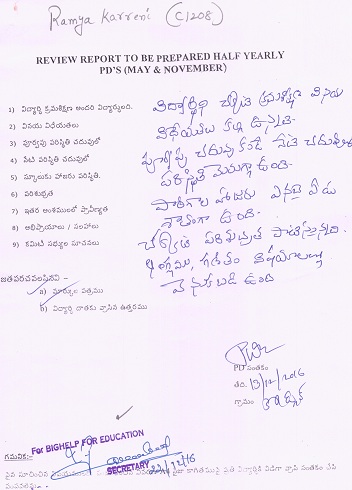 Ramya Karreni (C1208)
REVIEW REPORT TO BE PREPARED HALF YEARLY
PD'S (MAY & NOVEMBER)
1) విద్యార్థి క్రమశిక్షణ అందరి విద్యార్థులది.
2) వినయ విధేయతలు
3) పూర్వపు పరిస్థితి చదువులో
4) నేటి పరిస్థితి చదువులో
5) స్కూలుకు హాజరు పరిస్థితి.
6) పరిశుభ్రత
7) ఇతర అంశములలో ప్రావీణ్యత
8) అభిప్రాయాలు / సలహాలు
9) కమిటి సభ్యుల సూచనలు
విద్యార్థిని క్రమశిక్షణ వినయ
విధేయతలు కల్గి ఉన్నది.
పూర్వపు చదువు కంటే నేటి చదువు
పరిస్థితి మెరుగ్గా ఉంది.
పాఠశాల హాజరు ఎనభై ఏడు
శాతంగా ఉంది.
పరిశుభ్రత పాటిస్తున్నది.
ఆంగ్లము, గణితం విషయాలలో
వెనుకబడి ఉంది
జతపరచవలసినవి -
a) మార్కుల పత్రము
b) విద్యార్థి దాతకు వ్రాసిన ఉత్తరము
PD సంతకం
తేది. 13/12/2016
గ్రామం
For BIGHELP FOR EDUCATION
SECRETARY 22/12/16
గమనిక:-